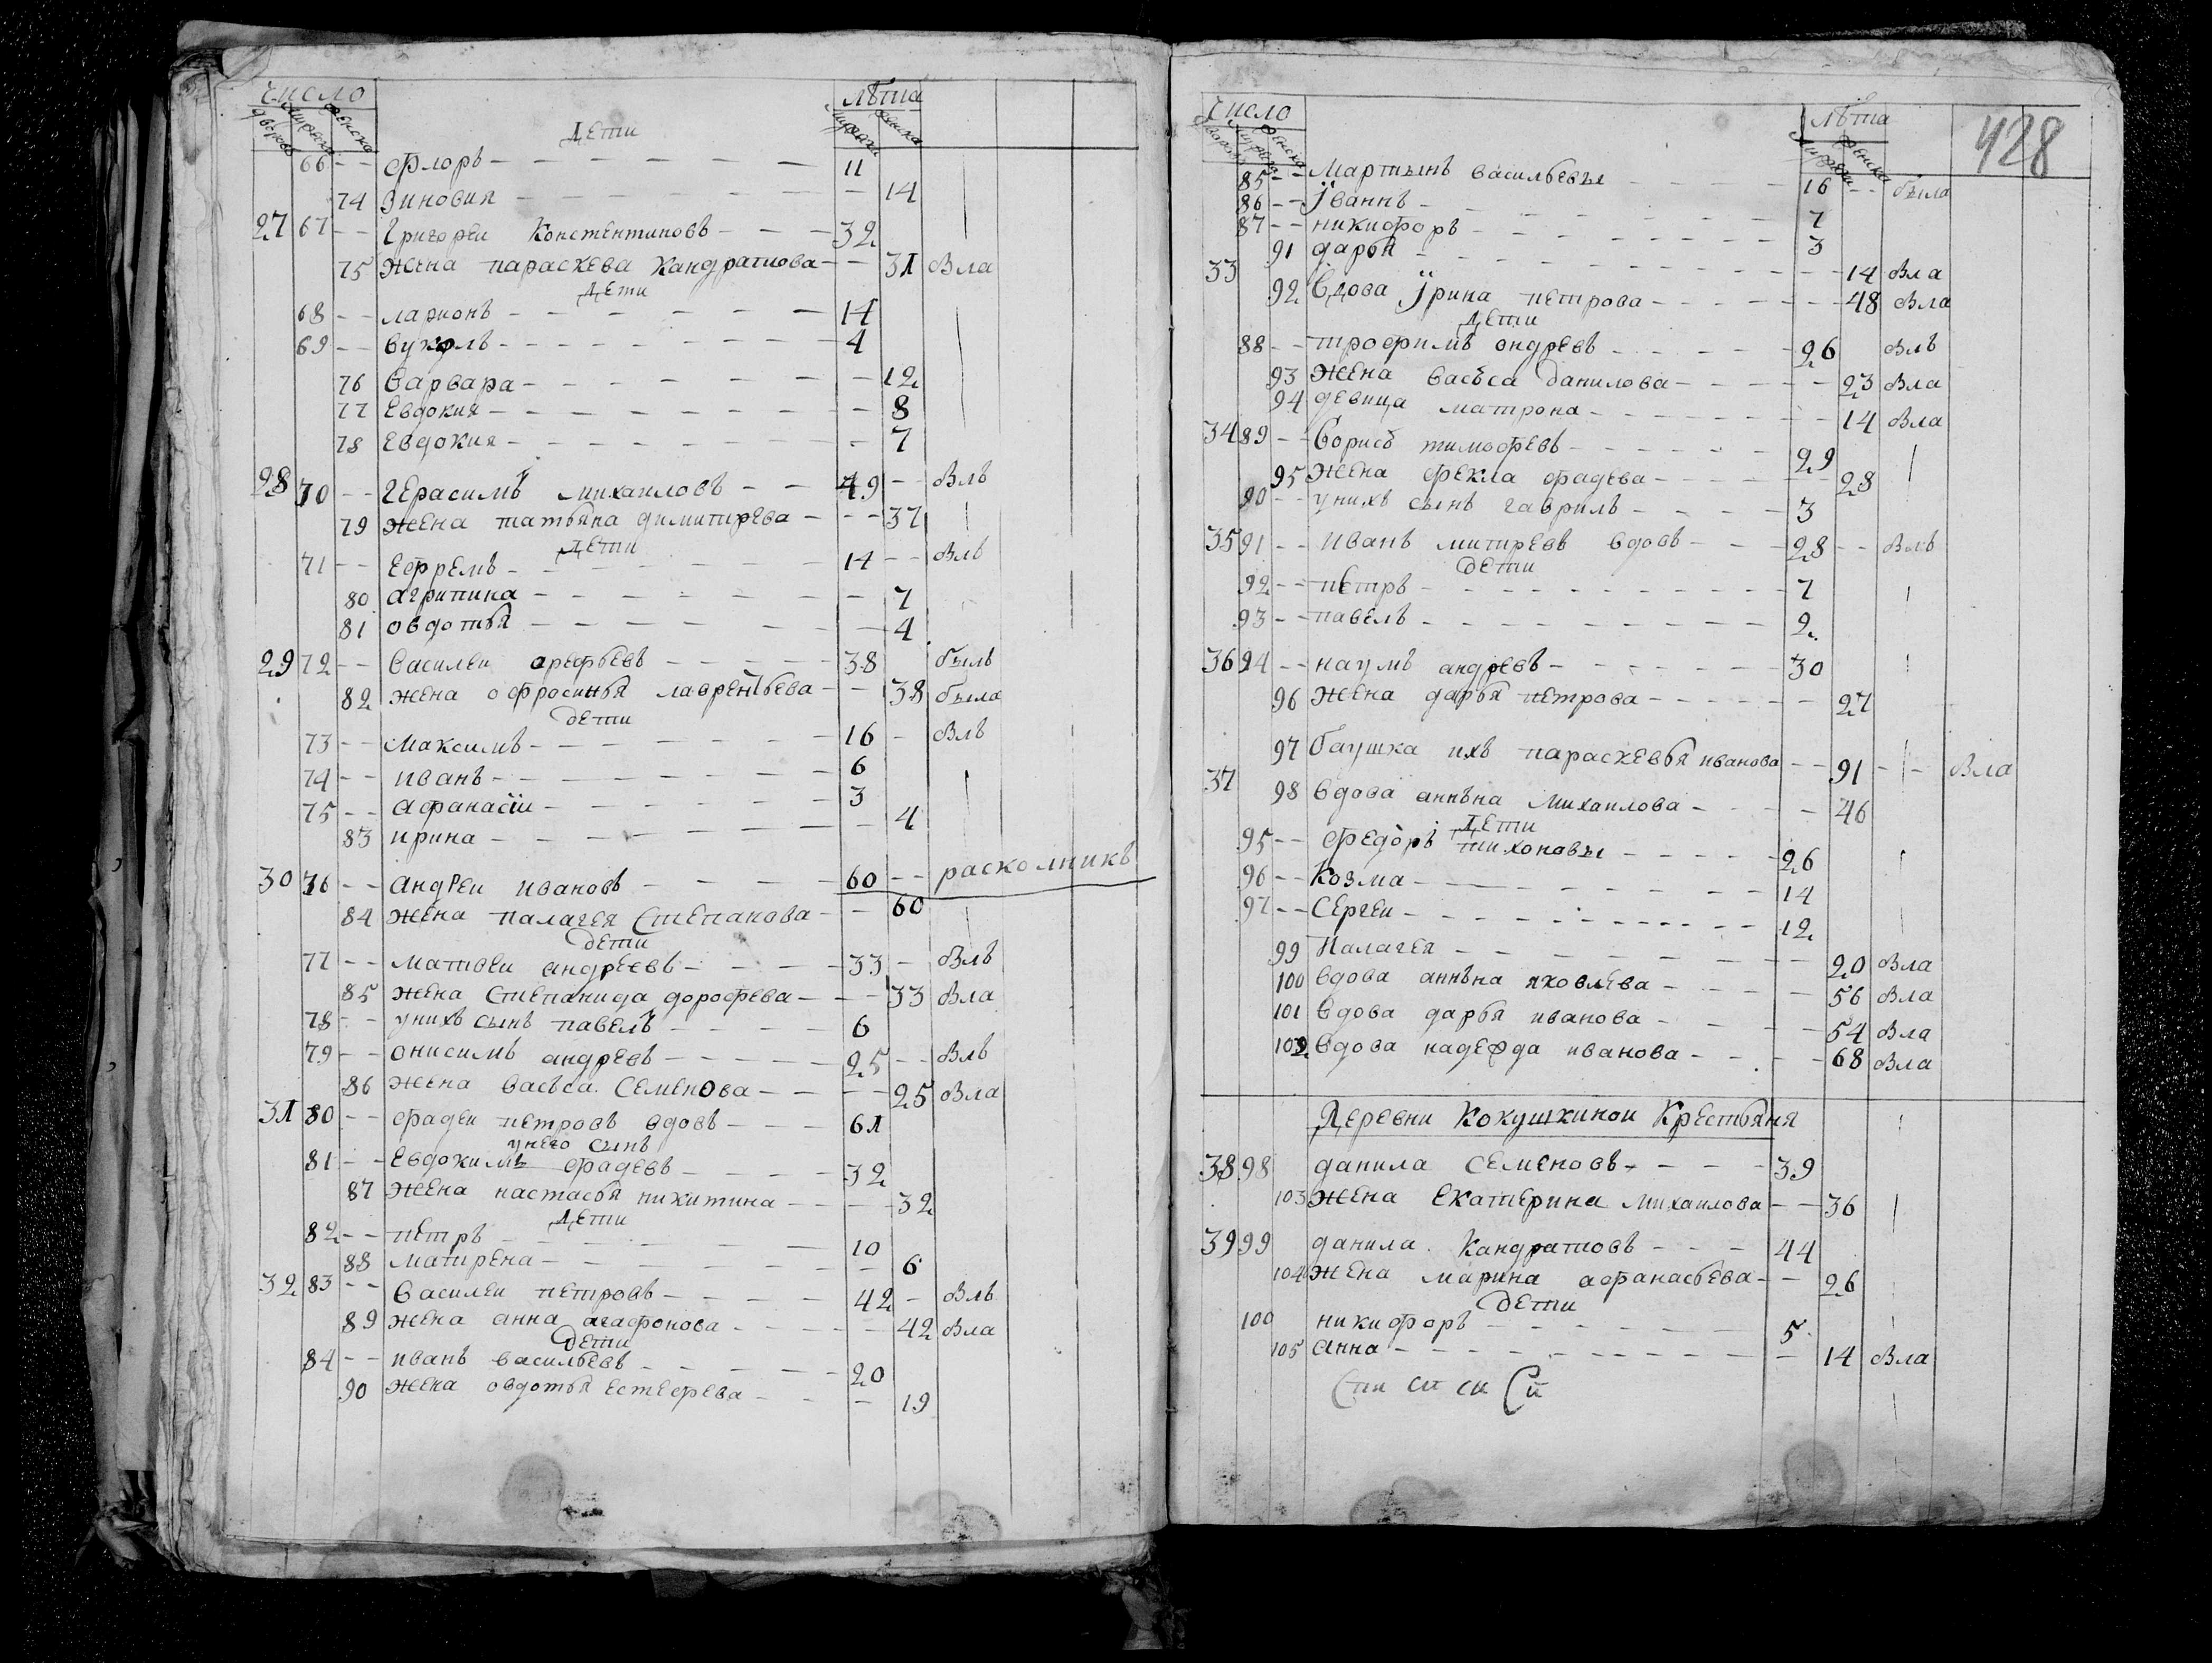 число лѣта
дворовъ мужеска женска мужеска женска
дети
66 -- флоръ 11
74 Зиновия 14
27 67 -- Григореи Констентиновъ 32
75 жена параскева Кандратиова 31 Бла
дети
68 -- ларионъ 14
69 -- Вуколъ 4
76 Варвара 12
77 Евдокия 8
78 Евдокия 7
28 70 -- Герасимъ михаиловъ 49 -- Блъ
79 жена татьяна димитирева 37
дети
71 -- Ефремъ 14 -- Блъ
80 агрипина 7
81 овдотья 4
29 72 -- Василеи арефьевъ 38 былъ
82 жена офросинья лаврентьева 38 была
дети
73 -- Максимъ 16 - Блъ
74 -- иванъ 6
75 -- афанасіи 3
83 ирина 4
30 76 -- Андреи ивановъ 60 -- расколникъ
84 жена палагея Степанова 60
дети
77 -- матвеи андреевъ 33 - Блъ
85 жена Степанида дорофева 33 Бла
78 -- унихъ сынъ павелъ 6
79 -- онисимъ андревъ 25 -- Блъ
86 жена Васъса Семенова 25 Бла
31 80 -- фадеи петровъ вдовъ 61
унего сынъ
81 -- Евдокимъ фадевъ 32
87 жена настасья никитина 32
дети
82 -- петръ 10
88 матирена 6
32 83 -- Василеи петровъ 42 - Блъ
89 жена анна агафонова 42 Бла
дети
84 -- иванъ васильевъ 20
90 жена овдотья естефева 19
428
число лѣта
дворовъ мужеска женска мужеска женска
85 -- Мартынъ васильевы 16 -- была
86 -- Їваннъ 7
87 -- никифоръ 3
91 дарья 14 Бла
33 92 Вдова Їрина петрова 48 Бла
дети
88 -- трофимъ ондревъ 26 Блъ
93 жена Васъса данилова 23 Бла
94 девица матрона 14 Бла
34 89 -- Борисъ тимофевъ 29
95 жена фекла фадева 28
90 -- унихъ сынъ гаврилъ 3
35 91 -- иванъ митиревъ вдовъ 28 -- Блъ
дети
92 -- петръ 7
93 -- павелъ 2
36 94 -- наумъ андревъ 30
96 жена дарья петрова 27
97 баушка ихъ параскевья иванова 91 Бла
37 98 Вдова аннъна михаилова 46
дети
95 -- федоръ тихоновы 26
96 -- Козма 14
97 -- Сергеи 12
99 Палагея 20 Бла
100 вдова аннъна яковлева 56 Бла
101 вдова дарья иванова 54 Бла
102 вдова надежда иванова 68 Бла
Деревни Кокушкинои Крестьяня
38 98 данила Семеновъ 39
103 жена Екатерина михаилова 36
39 99 данила Кандратиовъ 44
104 жена марина афанасьева 26
дети
100 никифоръ 5
105 анна 14 Бла